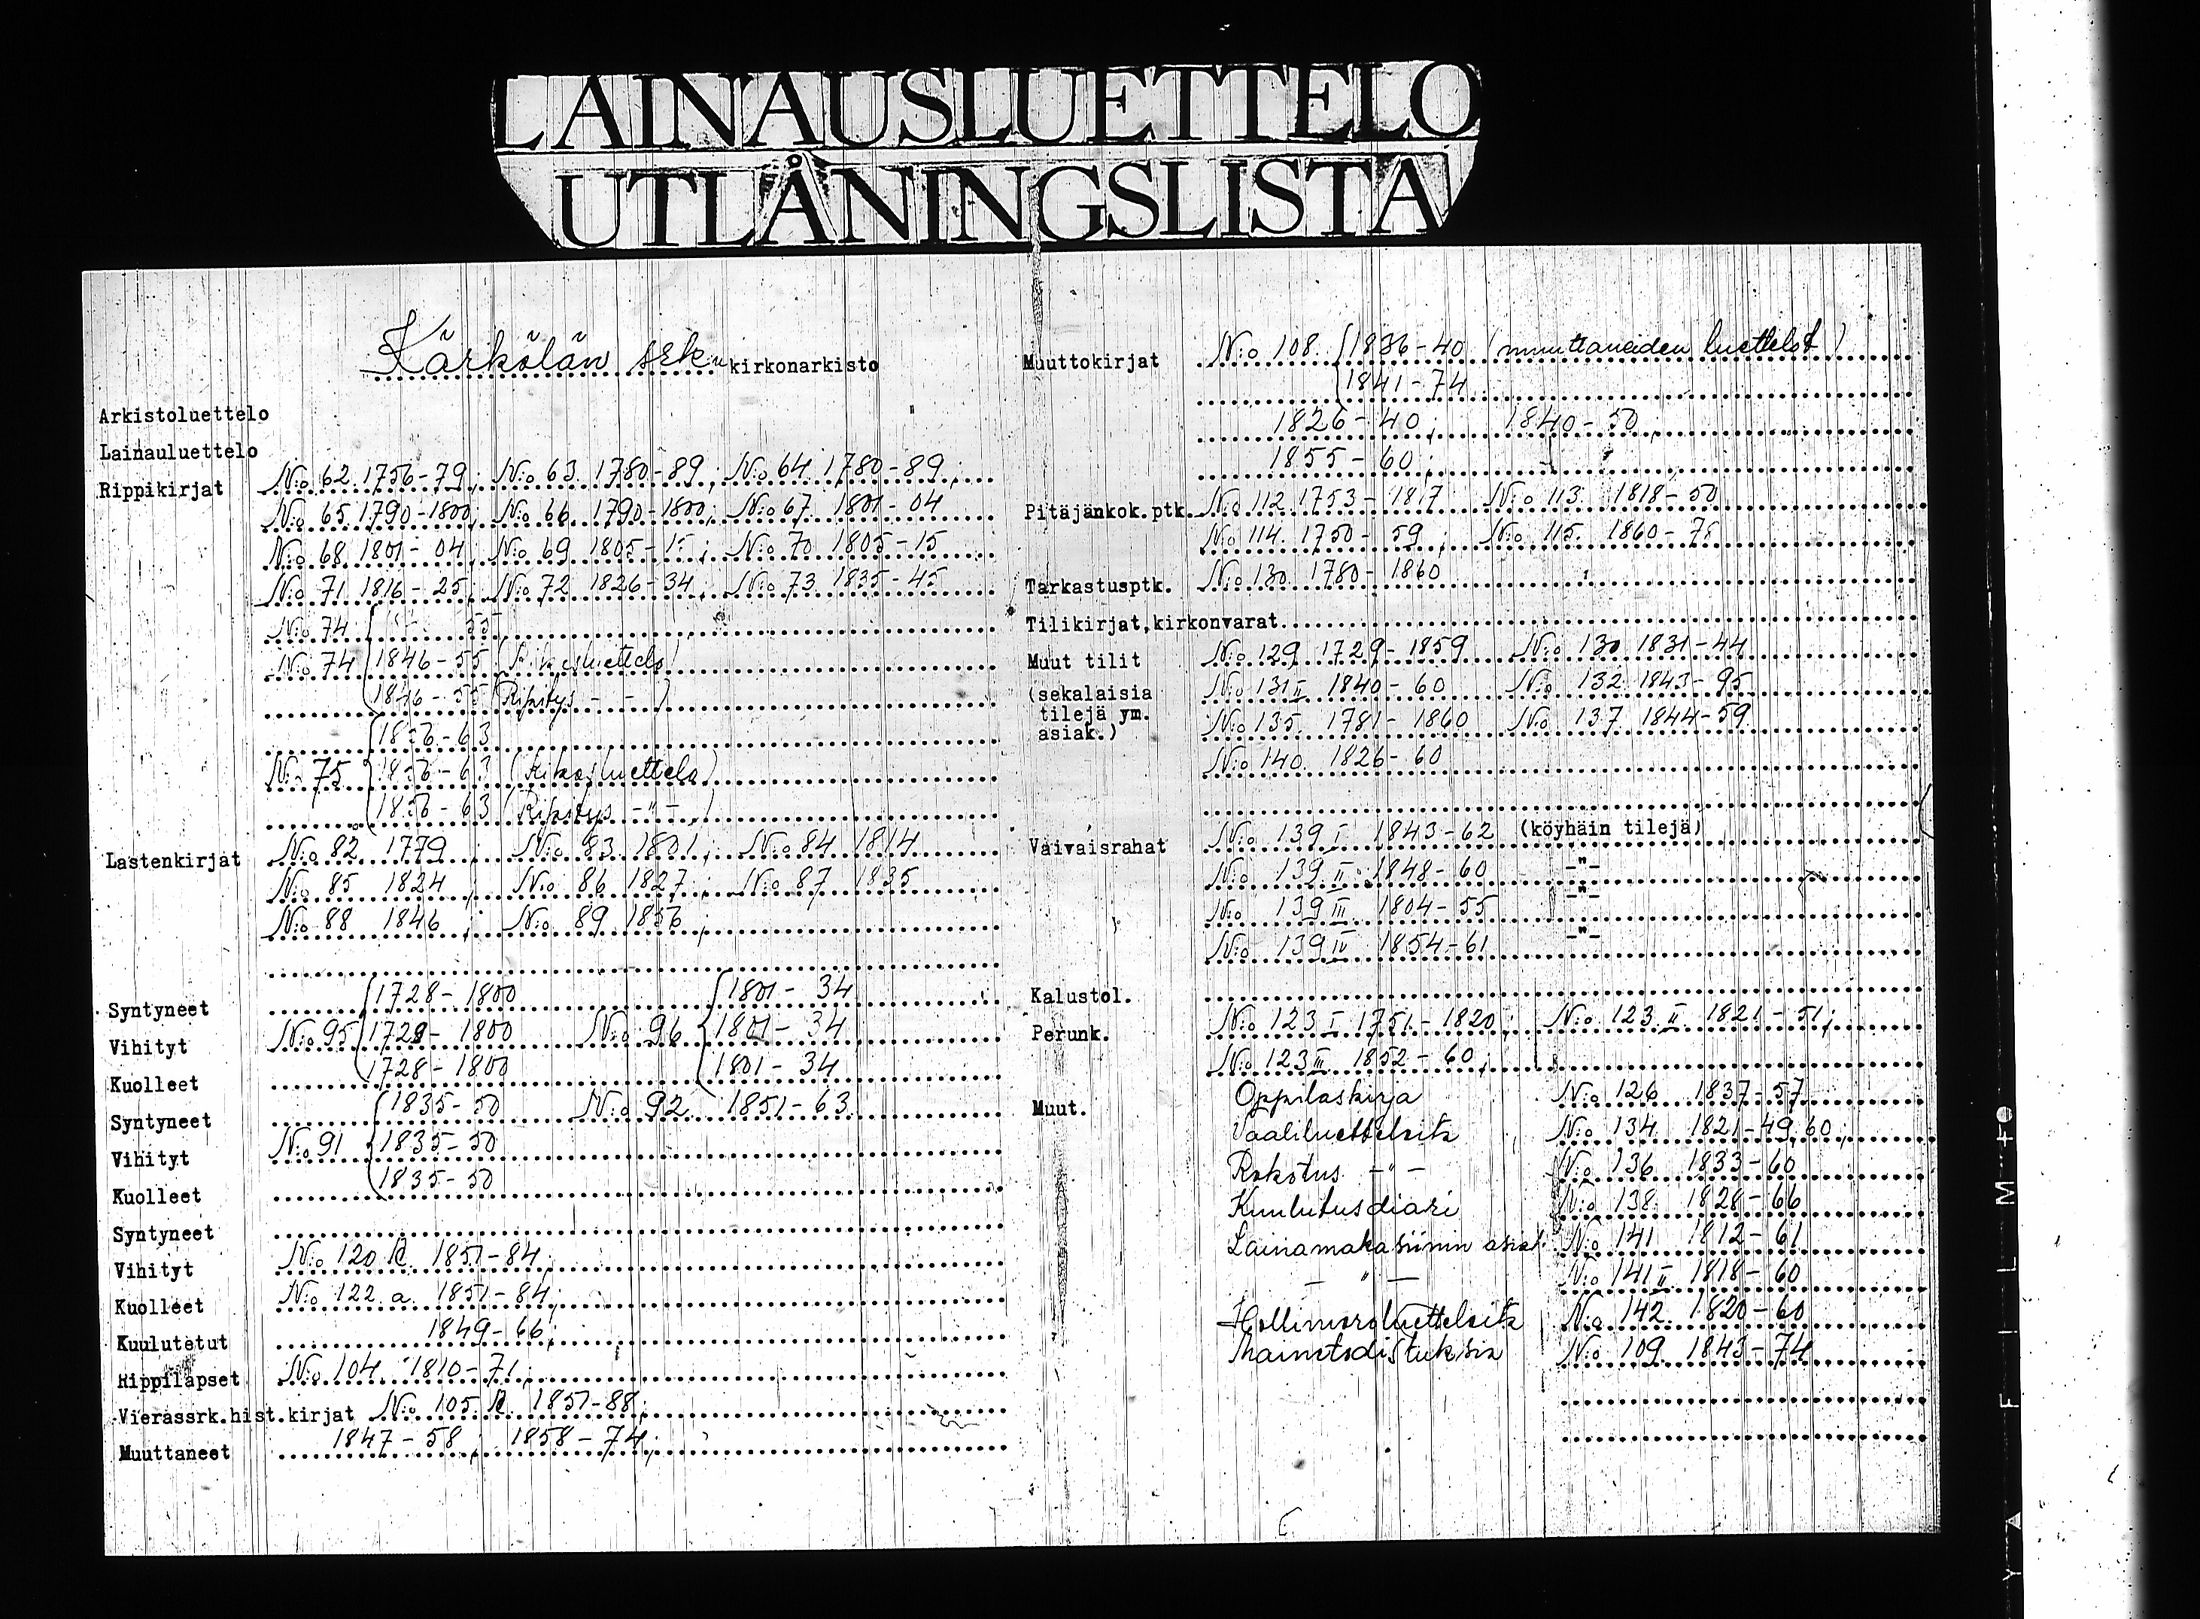 LAINAUSLUETTELO
UTLÅNINGSLISTA
Kärkölän srk:n kirkonarkisto
Arkistoluettelo
Lainauluettelo
Rippikirjat N:o 62 1756-79; N:o 63 1780-89; N:o 64 1780-89;
N:o 65 1790-1800; N:o 66 1790-1800; N:o 67 1801-04
N:o 68 1801-04; N:o 69 1805-15; N:o 70 1805-15
N:o 71 1816-25; N:o 72 1826-34; N:o 73 1835-45
N:o 74 55
N:o 74 1846-55 (Rikosluettelo)
1846-55 (Ripitys - - )
1856-63
N:o 75 1856-63 (Rikosluettelo)
1856-63 (Ripitys -"- )
Lastenkirjat N:o 82 1779; N:o 83 1801; N:o 84 1814
N:o 85 1824; N:o 86 1827; N:o 87 1835
N:o 88 1846; N:o 89 1856;
Syntyneet 1728-1800 1801-34
Vihityt N:o 95 1728-1800 N:o 96 1801-34
Kuolleet 1728-1800 1801-34
Syntyneet 1835-50 N:o 92 1851-63
Vihityt N:o 91 1835-50
Kuolleet 1835-50
Syntyneet
Vihityt N:o 120 1851-84;
Kuolleet N:o 122 a 1851-84;
Kuulutetut 1849-66;
Rippilapset N:o 104 1810-71;
Vierassrk.hist.kirjat N:o 105 1857-88;
Muuttaneet 1847-58; 1858-74;
Muuttokirjat N:o 108 1836-40 (muuttaneiden luettelot)
1841-74
1826-40; 1840-50;
1855-60;
Pitäjänkok.ptk. N:o 112 1753-1817 N:o 113 1818-50
N:o 114 1750-59; N:o 115 1860-78
Tarkastusptk. N:o 130 1780-1860
Tilikirjat,kirkonvarat
Muut tilit N:o 129 1729-1859 N:o 130 1831-44
(sekalaisia N:o 131 II 1840-60 N:o 132 1843-95
tilejä ym. N:o 135 1781-1860 N:o 137 1844-59
asiak.)
N:o 140 1826-60
Vaivaisrahat N:o 139 I 1843-62 (köyhäin tilejä)
N:o 139 II 1848-60 -"-
N:o 139 III 1804-55 -"-
N:o 139 IV 1854-61 -"-
Kalustol.
Perunk. N:o 123 I 1751-1820; N:o 123 II 1821-51;
N:o 123 III 1852-60;
Muut. Oppilaskirja N:o 126 1837-57
Vaaliluetteloita N:o 134 1821-49,60;
Rokotus -"- N:o 136 1833-60
Kuulutusdiari N:o 138 1828-66
Lainamakasiinin asiat N:o 141 1812-61
- " - N:o 141 II 1818-60
N:o 142 1820-60
N:o 109 1843-74
FILM